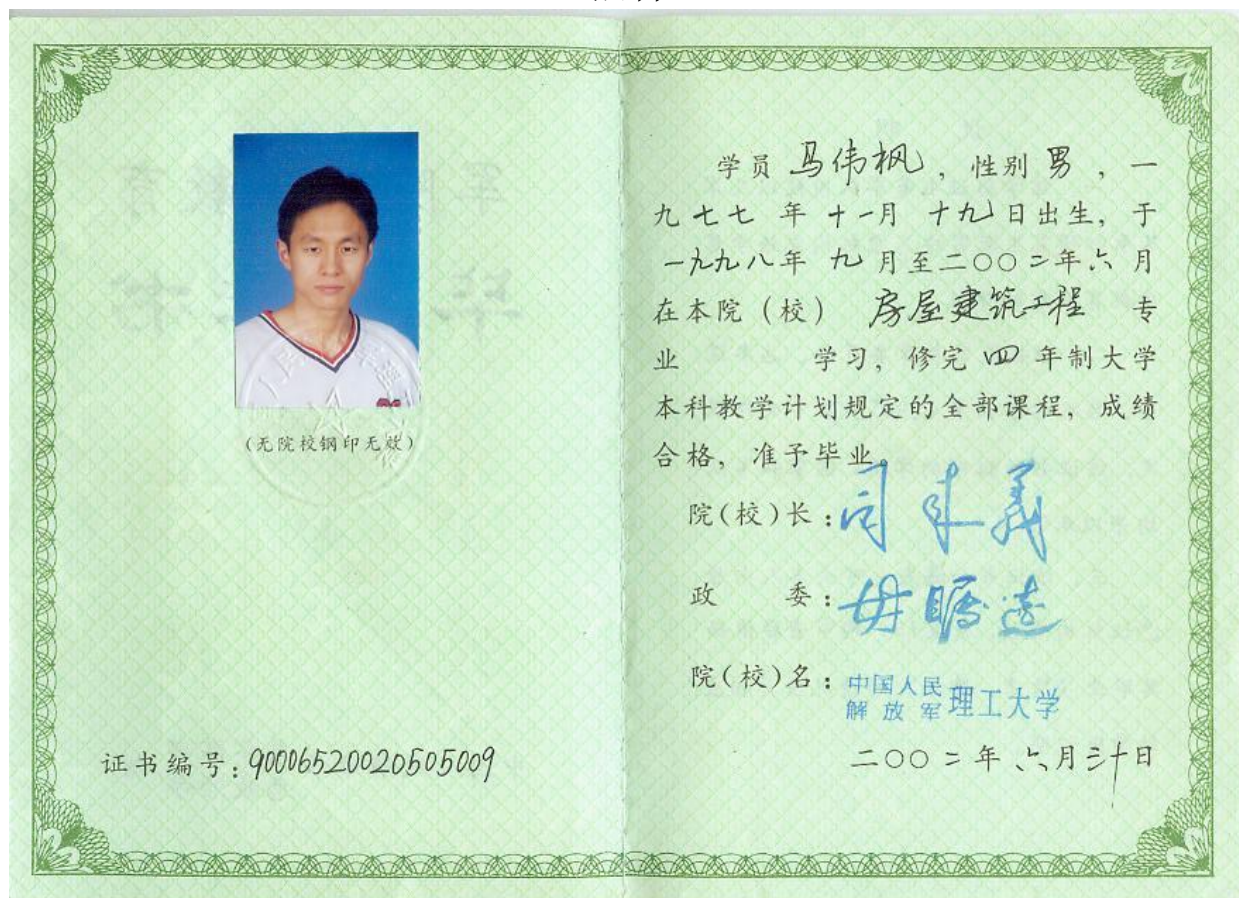 (无院校钢印无效)
证书编号:90006520020505009
学员 马伟枫 , 性别 男 , 一
九七七 年 十一月 十九日出生, 于
一九九八年 九 月至二〇〇二年六月
在本院(校) 房屋建筑工程 专
业 学习, 修完 四 年制大学
本科教学计划规定的全部课程, 成绩
合格, 准予毕业。
院(校)长:司来义
政 委:毋瞩远
院(校)名:中国人民解放军理工大学
二〇〇二年 六月三十日